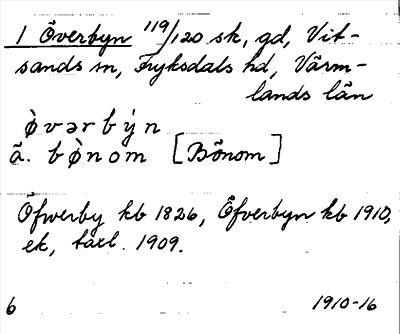 1 Överbyn 119/120 sk, gd, Vit-
sands sn, Fryksdals hd, Värm-
lands län
ø̀vərby̾n
ä. bø̀nom [Bönom]
Öfwerby kb 1826, Öfverbyn kb 1910,
ek, taxl. 1909.
6 1910-16